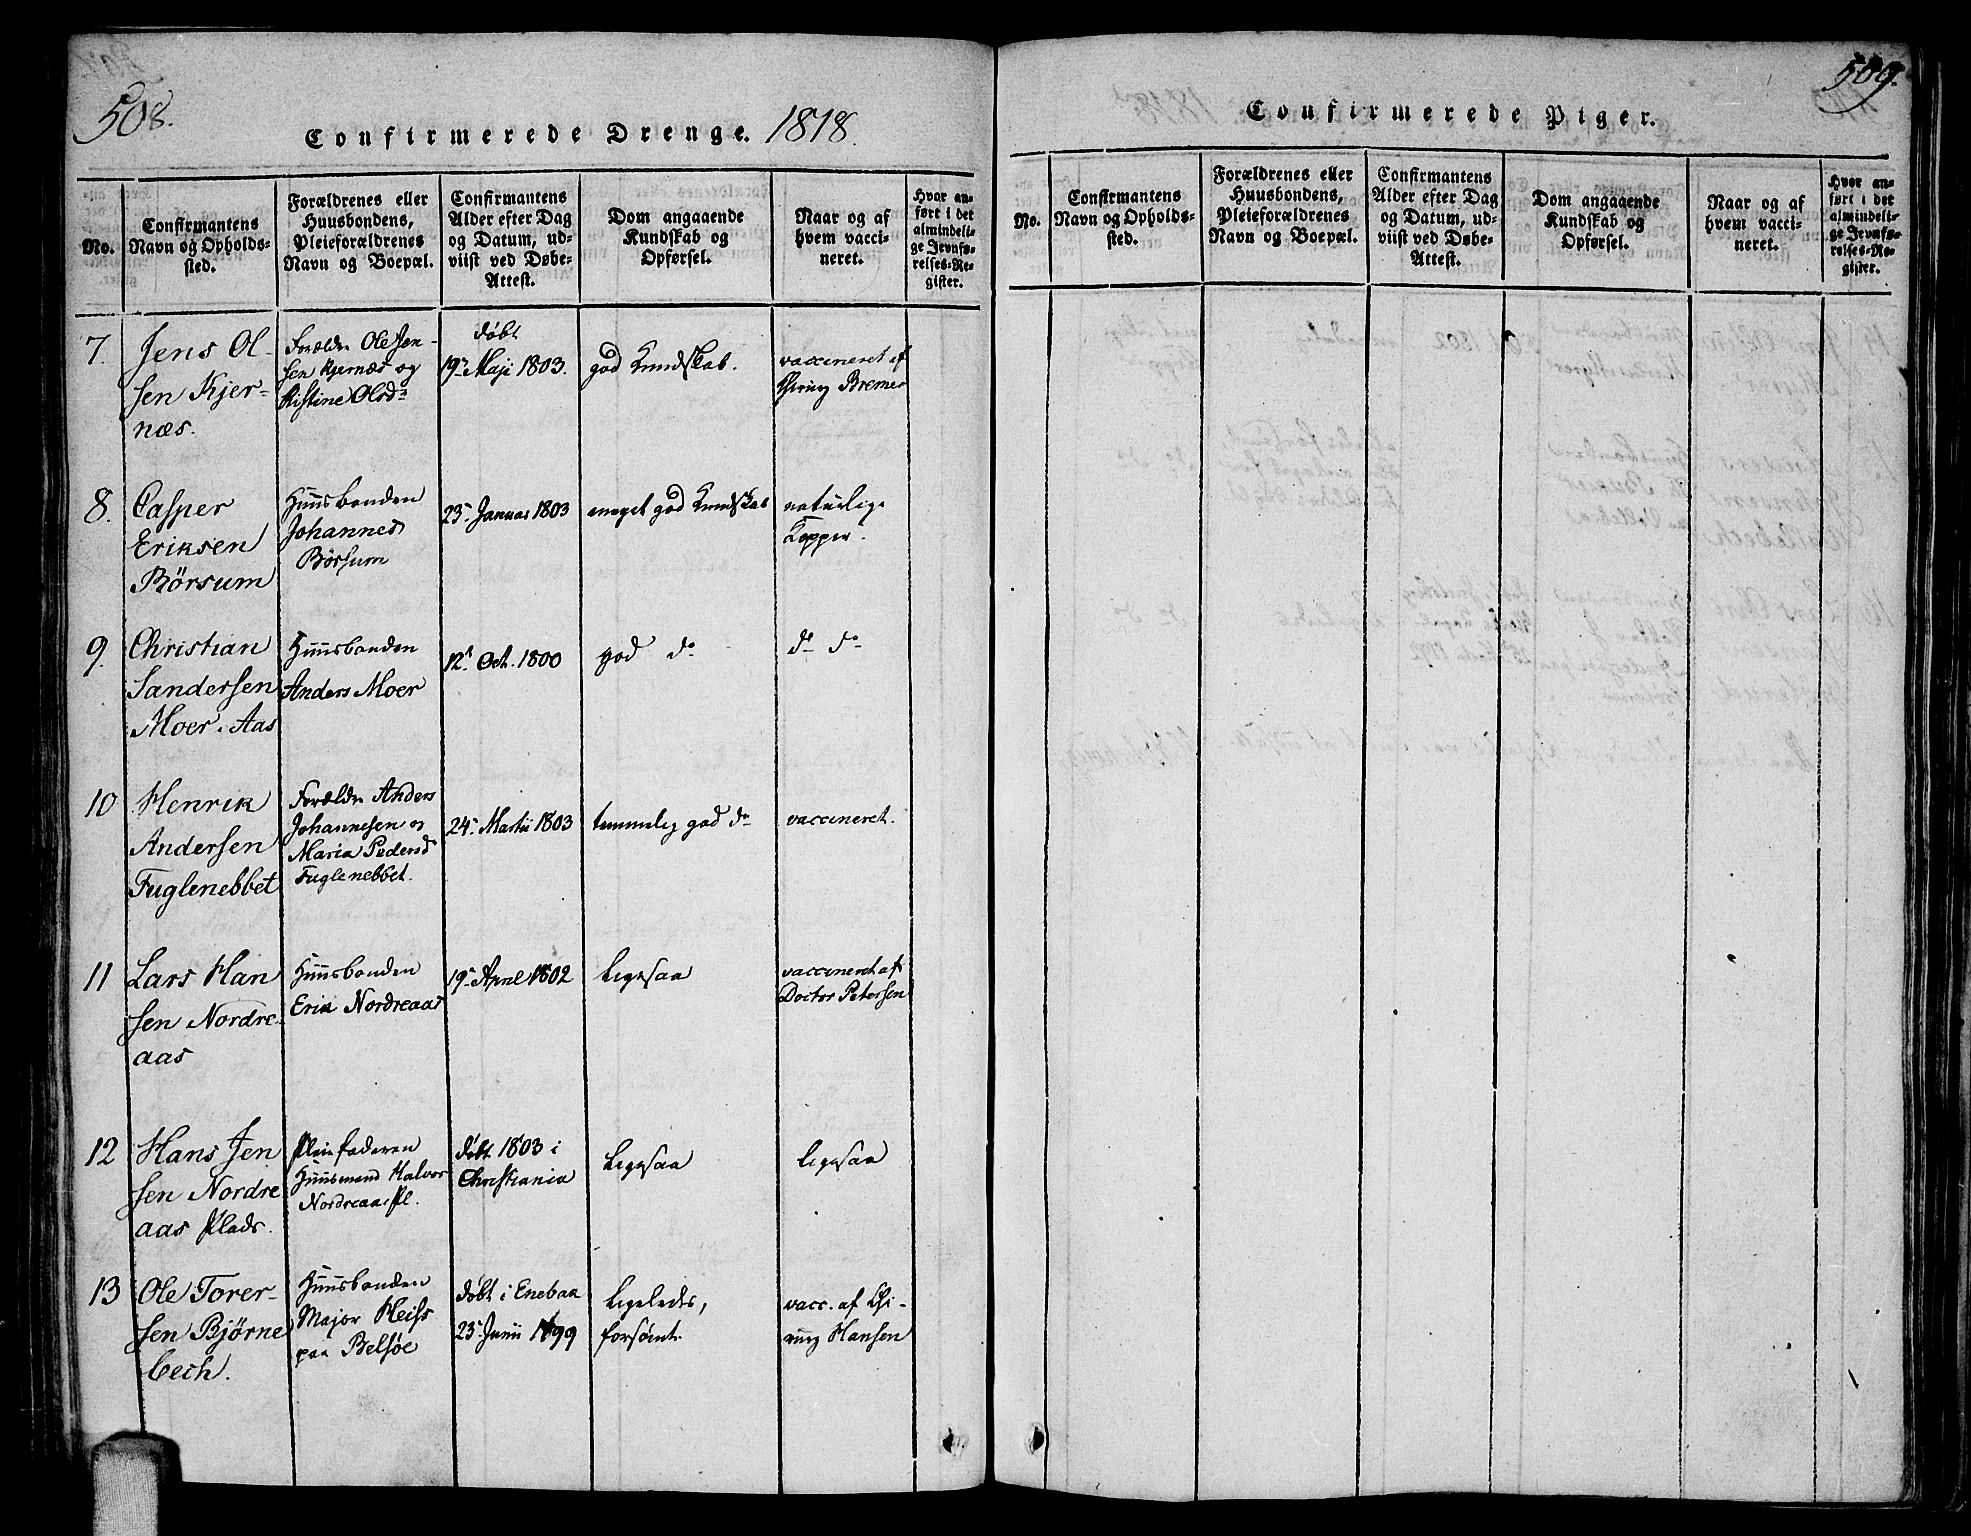 508.
Confirmerede Drenge. 1818.
No.
Confirmantens
Navn og Opholds-
sted.
Forældrenes eller
Huusbondens,
Pleieforældrenes
Navn og Boepæl.
Confirmantens
Alder efter Dag
og Datum, ud-
viist ved Døbe-
Attest.
Dom angaaende
Kundskab og
Opførsel.
Naar og af
hvem vacci-
neret.
Hvor an-
ført i det
almindeli-
ge Jevnfø-
relses-Re-
gister.
7.
Jens Ol-
sen Kjer-
næs.
Forældre Ole Jen-
sen Kjernæs og
Kistine Olsd.
døbt
19. Maji 1803.
god Kundskab.
vaccineret af
Chirurg Bremer
8.
Casper
Eriksen
Börsum
Huusbonden
Johannes
Börsum
23. Januar 1803
meget god Kundskab
naturlige
Kopper.
9.
Christian
Sandersen
Moer. Aas
Huusbonden
Anders Moer
12. Oct. 1800
god do
do do
10
Henrik
Andersen
Fuglenebbet
Forældre Anders
Johannesen og
Maria Pedersd
Fuglenebbet.
24. Martii 1803
temmelig god do
vaccineret.
11
Lars Han
sen Nordre-
aas
Huusbonden
Erik Nordreaas
19. April 1802
ligesaa
vaccineret af
Doctor Petersen
12
Hans Jen
sen Nordre
aas Plads.
Pleiefaderen
Huusmand Halvor
Nordreaas Pl.
døbt 1803 i
Christiania
ligesaa
ligesaa
13
Ole Torer-
sen Bjørne
bech.
Huusbonden
Major Heiss
paa Belsöe
døbt i Enebak
23. Junii 1799
ligeledes,
forsömt.
vacc. af Chi-
rurg Hansen
509.
Confirmerede Piger.
No.
Confirmantens
Navn og Opholds-
sted.
Forældrenes eller
Huusbondens,
Pleieforældrenes
Navn og Boepæl.
Confirmantens
Alder efter Dag
og Datum, ud-
viist ved Døbe-
Attest.
Dom angaaende
Kundskab og
Opførsel.
Naar og af
hvem vacci-
neret.
Hvor an-
ført i det
almindeli-
ge Jevnfø-
relses-Re-
gister.